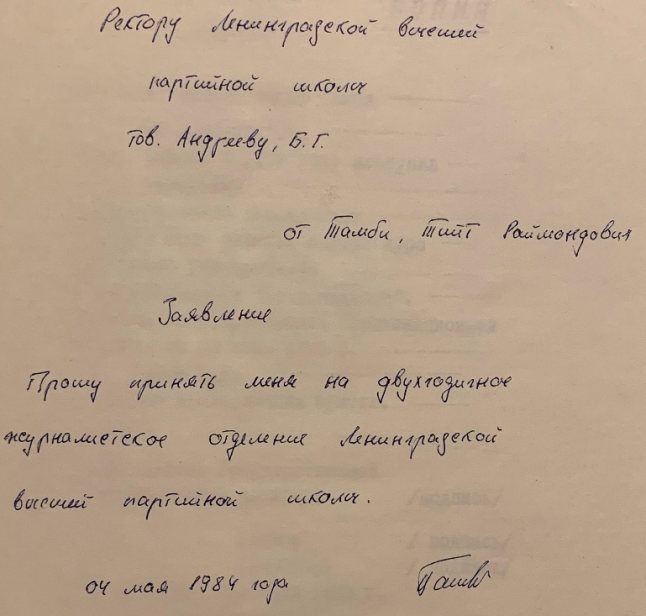 Ректору Ленинградской высшей
партийной школы
тов. Андрееву, Б.Г.
от Тамби, Тийт Раймондович
Заявление
Прошу принять меня на двухгодичное
журналистское отделение Ленинградской
высшей партийной школы.
04 мая 1984 года